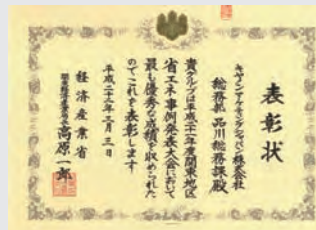 表彰状
キヤノンマーケティングジャパン株式会社
総務部 品川総務課殿
貴グループは平成二十一年度関東地区
省エネ事例発表大会において
最も優秀な成績を収められた
のでこれを表彰します
平成二十二年三月三日
経済産業省
関東経済産業局長 高原一郎